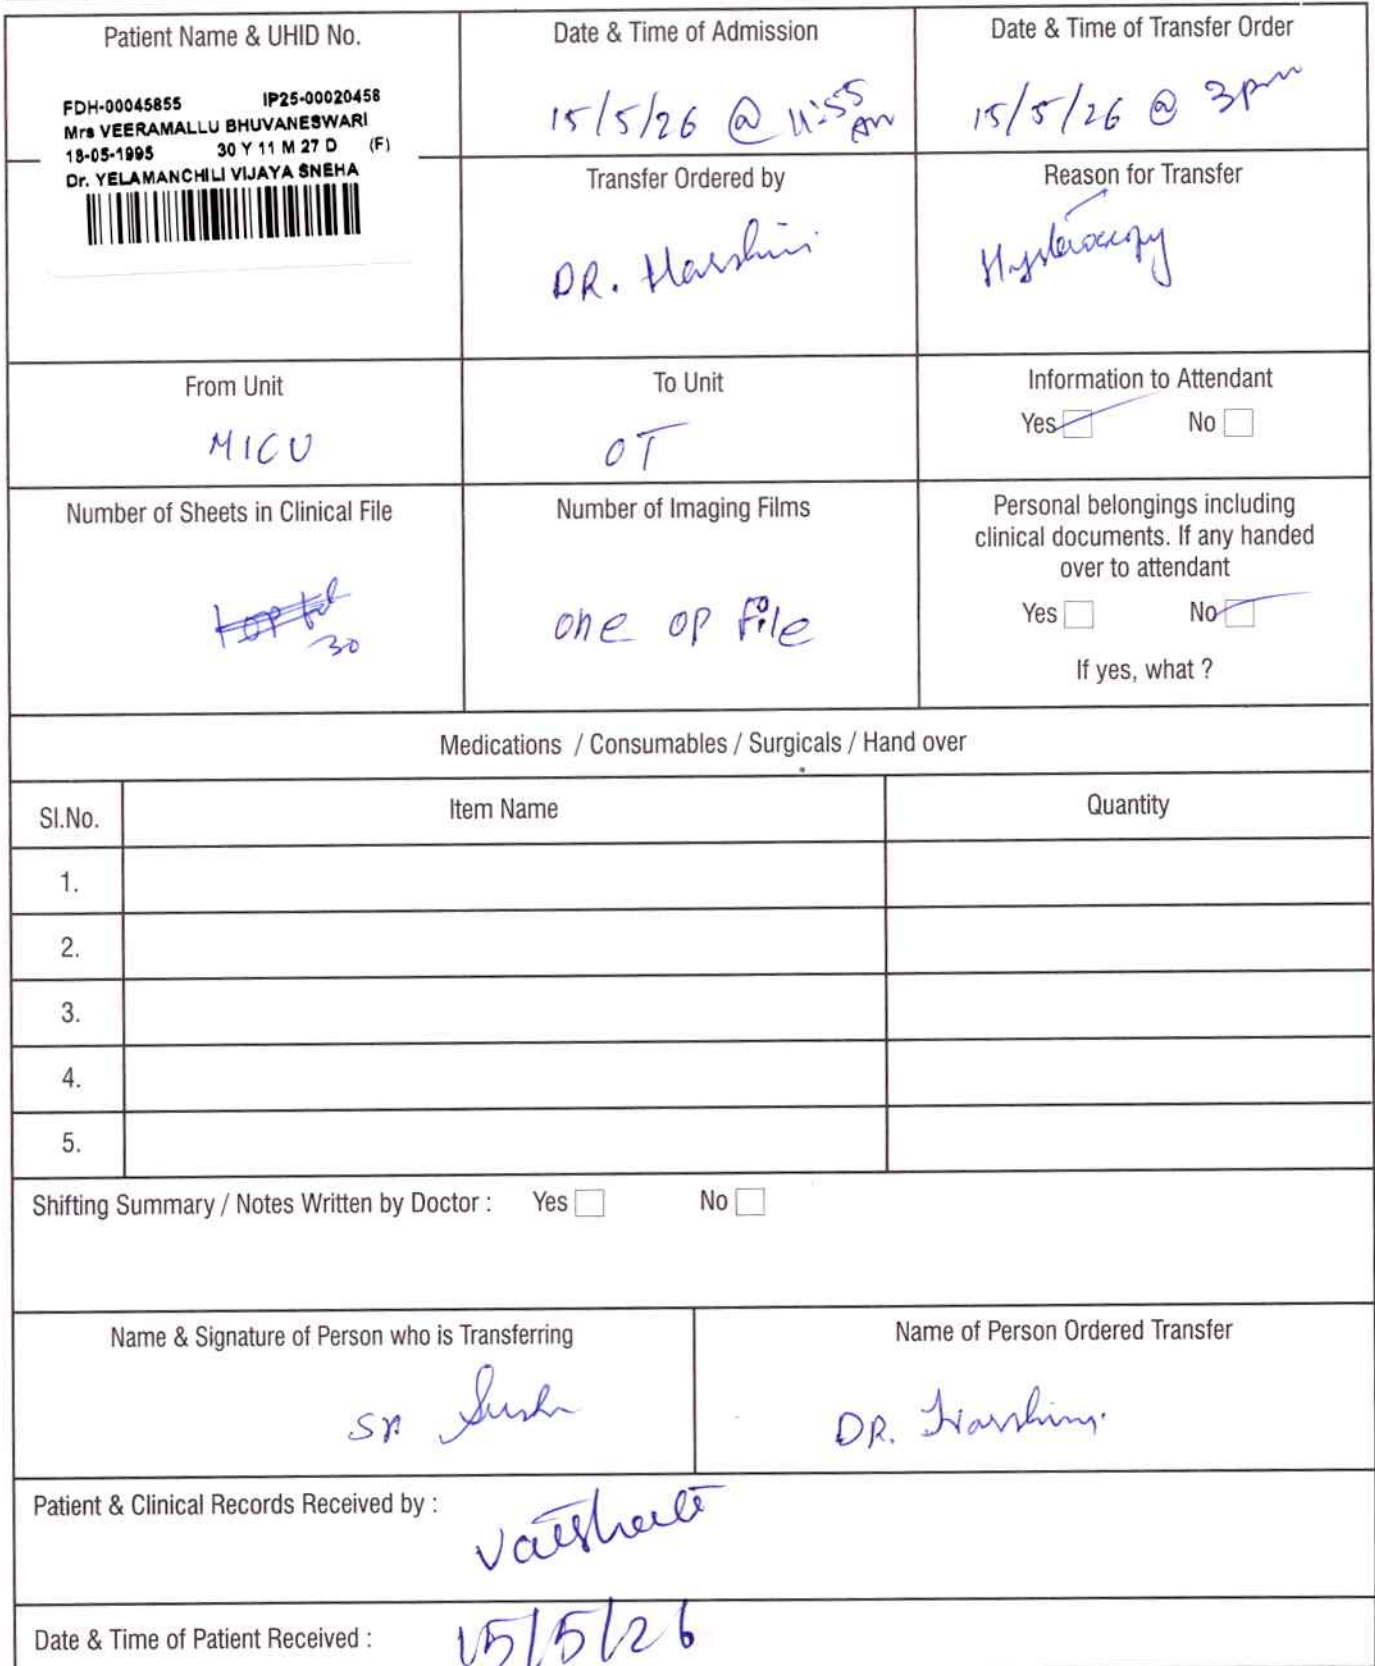 Patient Name & UHID No.
FDH-00045855 IP25-00020458
Mrs VEERAMALLU BHUVANESWARI
18-05-1995 30 Y 11 M 27 D (F)
Dr. YELAMANCHILI VIJAYA SNEHA
Date & Time of Admission
15/5/26 @ 11:55 Am
Date & Time of Transfer Order
15/5/26 @ 3pm
Transfer Ordered by
DR. Harshini
Reason for Transfer
Hysteroscopy
From Unit
MICU
To Unit
OT
Information to Attendant
Yes No
Number of Sheets in Clinical File
30
Number of Imaging Films
one op File
Personal belongings including
clinical documents. If any handed
over to attendant
Yes No
If yes, what ?
Medications / Consumables / Surgicals / Hand over
Sl.No. Item Name Quantity
1.
2.
3.
4.
5.
Shifting Summary / Notes Written by Doctor : Yes No
Name & Signature of Person who is Transferring
SR
Name of Person Ordered Transfer
DR. Harshini
Patient & Clinical Records Received by :
Date & Time of Patient Received : 15/5/26